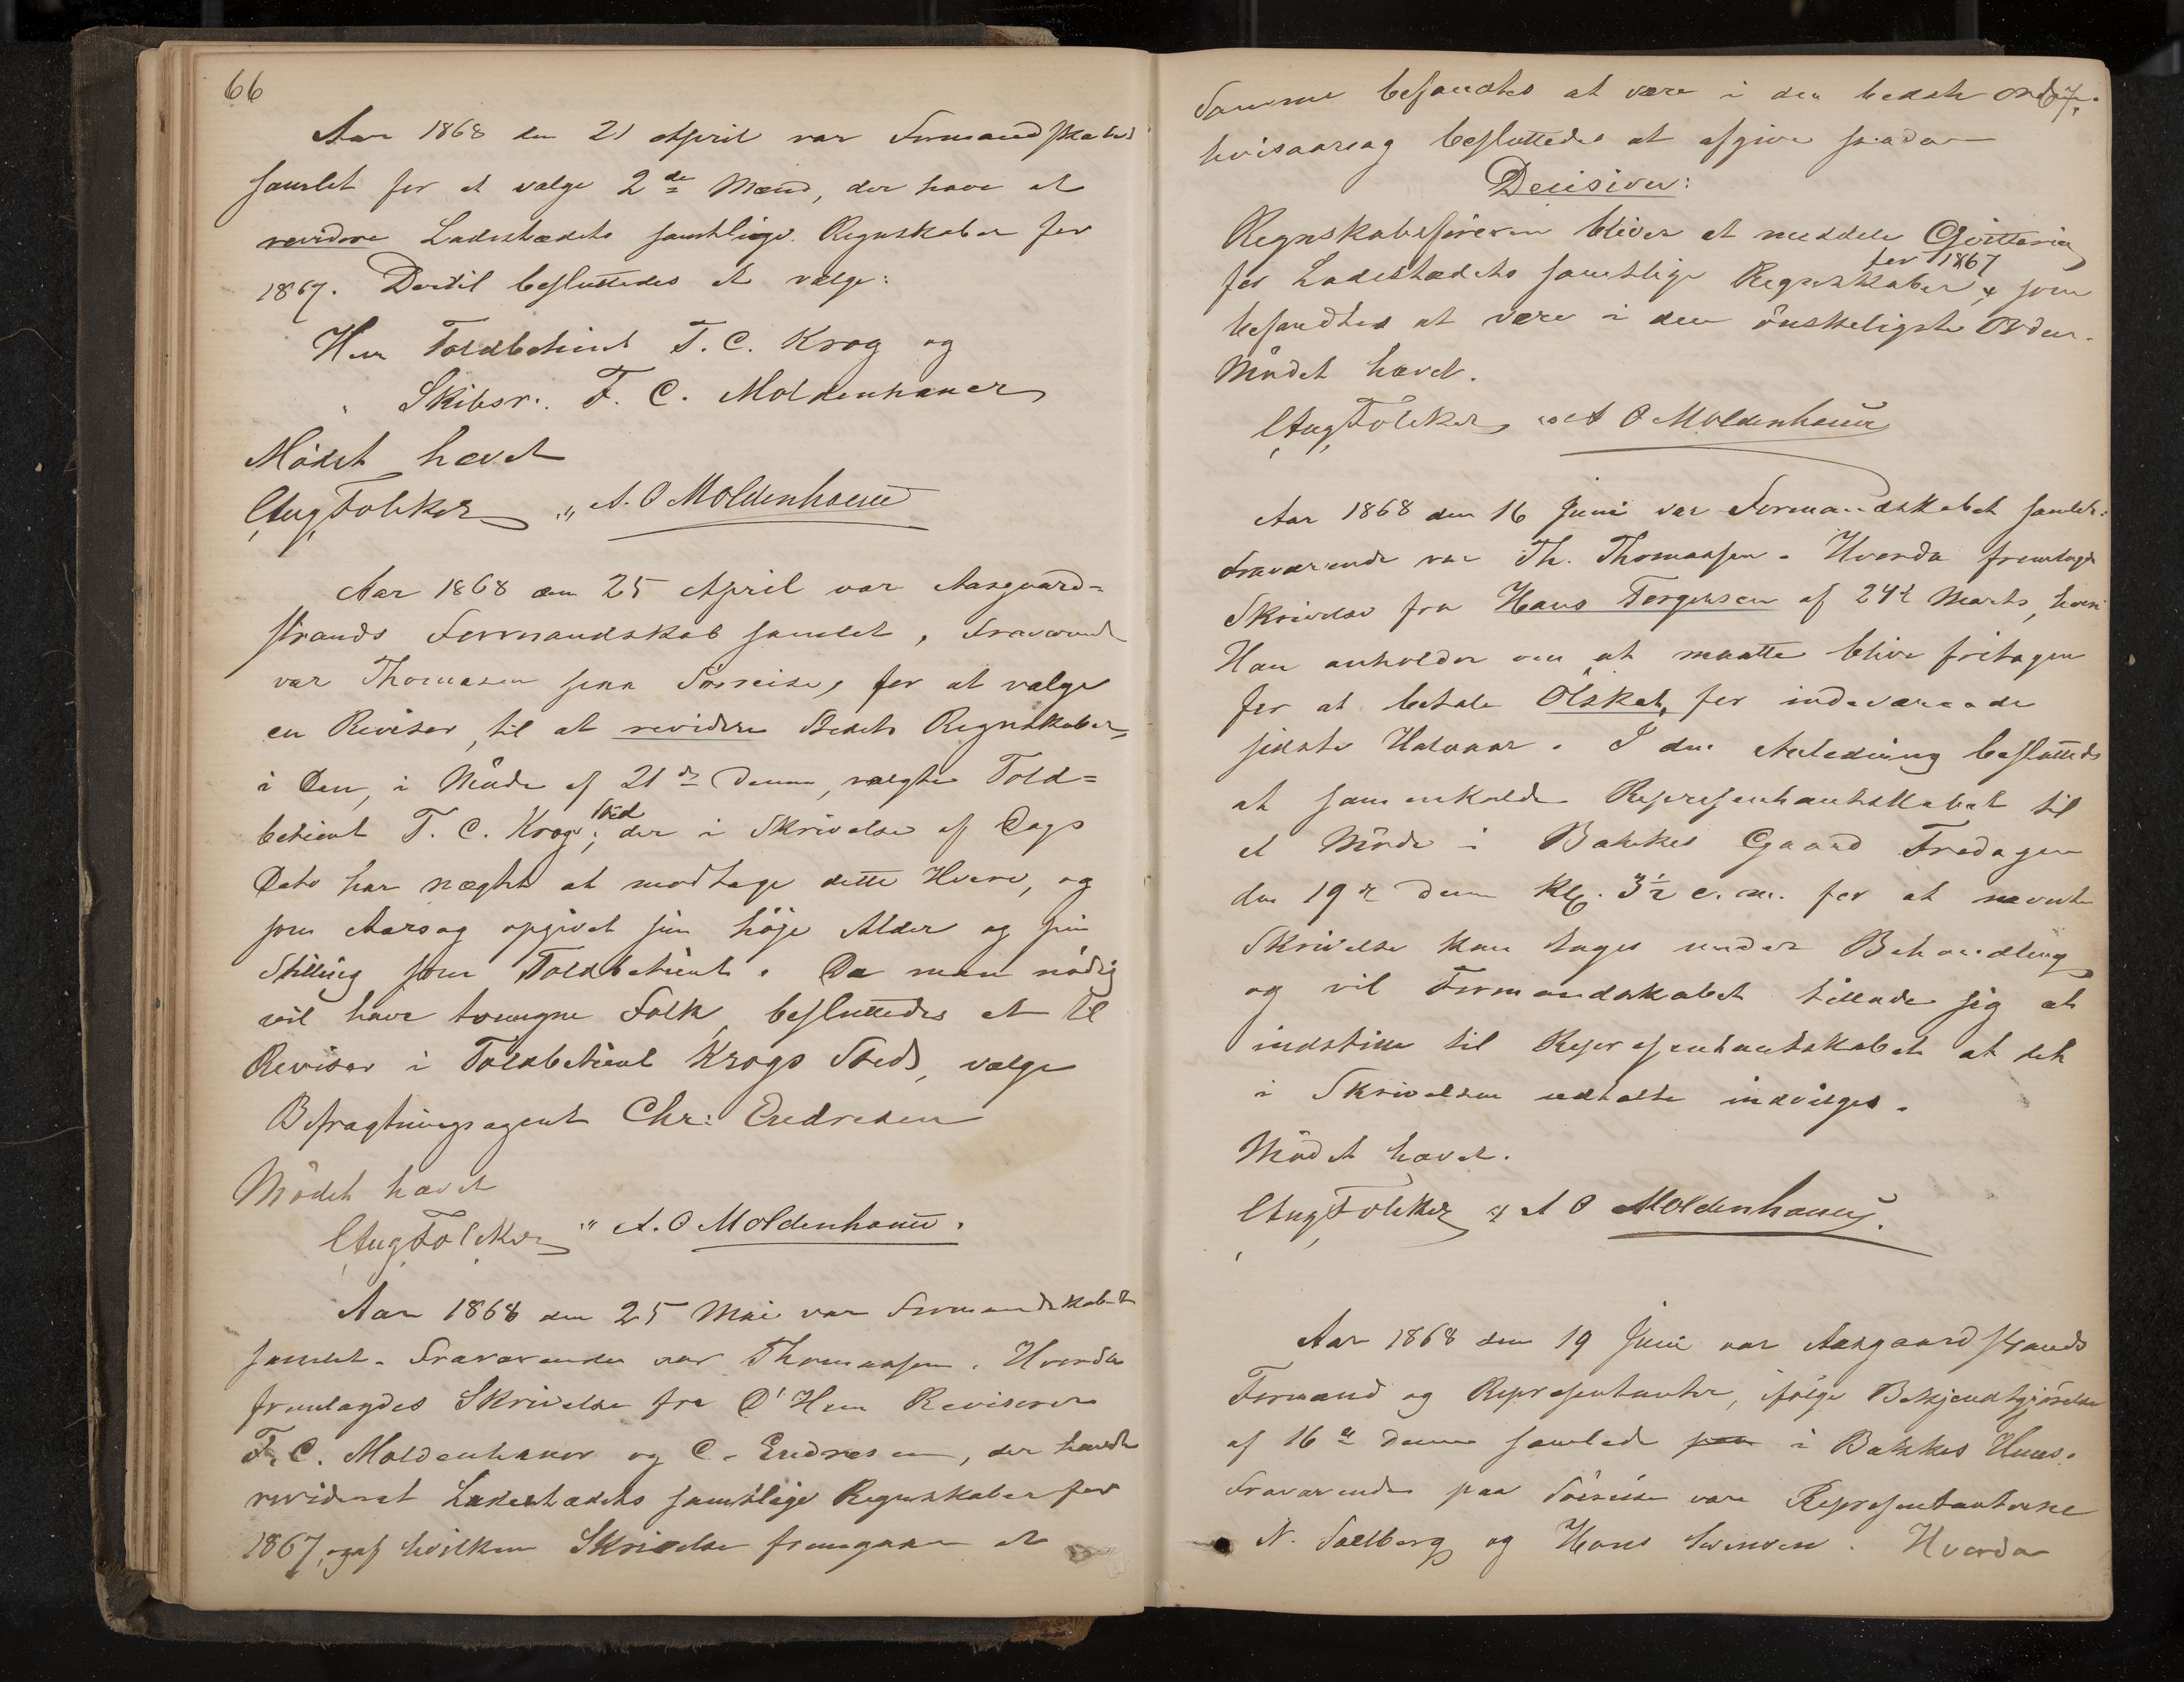 66
Aar 1868 den 21 April var Formandskabet
samlet for at vælge 2de Mænd, der have at
revidere Ladestædets samtlige Regnskaber for
1867. Dertil besluttedes at vælge:
Herr Toldbetient T. C. Krog og
" Skibsr. F. C. Moldenhauer
Mödet hævet
Aug Fölcker " A. O Moldenhauer
Aar 1868 den 25 April var Aasgaard-
strands Formandskab samlet, Fraværende
var Thomasen paa Söereise, for at vælge
en Revisor, til at revidere Stedets Regnskaber,
i Den, i Möde af 21de dennes, valgte Told=
betient T. C. Krogs Sted; der i Skrivelse af Dags
Dato har nægtet at modtage dette Hverv, og
som Aarsag opgivet sin höje Alder og sin
Stilling som Toldbetient. Da man nödig
vil have tvungne Folk, besluttedes at til
Revisor i Toldbetient Krogs Sted, vælge
Befragtningsagent Chr: Endresen
Mödet hævet
Aug Fölcker " A. O Moldenhauer.
Aar 1868 den 25 Mai var Formandskabet
samlet. Fraværende var Thomassen. Hvorda
fremlagdes Skrivelse fra D'Herr Revisorer
F. C. Moldenhauer og C. Endresen, der havde
revideret Ladestædets samtlige Regnskaber for
1867, og af hvilken Skrivelse fremgaar at
Samme befandtes at være i den bedste Orden,
hvisaarsag besluttedes at afgive saadan
Decision:
Regnskabsföreren bliver at meddele Qvittering
for Ladestædets samtlige Regnskaber for 1867, som
befandtes at være i den önskeligste Orden.
Mödet hævet.
Aug Fölcker " A O Moldenhauer
Aar 1868 den 16 Juni var Formandskabet samlet.
Fraværende var Th. Thomassen. Hvorda fremlagdes
Skrivelse fra Hans Torgersen af 24de Marts, hvori
Han anholder om at maatte blive fritagen
for at betale Ölskat, for indeværende
sidste Halvaar. I den Anledning besluttedes
at sammenkalde Repræsentantskabet til
et Möde i Bakkes Gaard Fredagen
den 19de dennes Kl. 3½ e. m. for at nævnte
Skrivelse kan tages under Behandling
og vil Formandskabet tillade sig at
indstille til Repræsentantskabet at det
i Skrivelsen udtalte indvilges.
Mödet hævet.
Aug Fölcker " A O Moldenhauer.
Aar 1868 den 19 Juni var Aasgaardstrands
Formænd og Repræsentanter, ifölge Bekjendtgjörelse
af 16de dennes samlede paa i Bakkes Huus.
Fraværende paa Söereise vare Repræsentanterne
N. Solberg og Hans Iversen. Hvorda